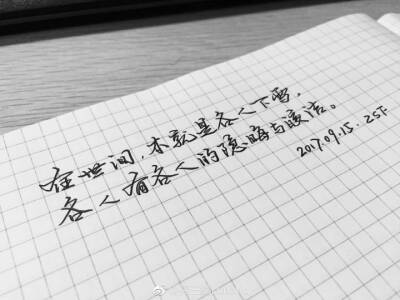 在世间，本就是各人下雪，
各人有各人的隐晦与皎洁。
2017.09.15. ZST.